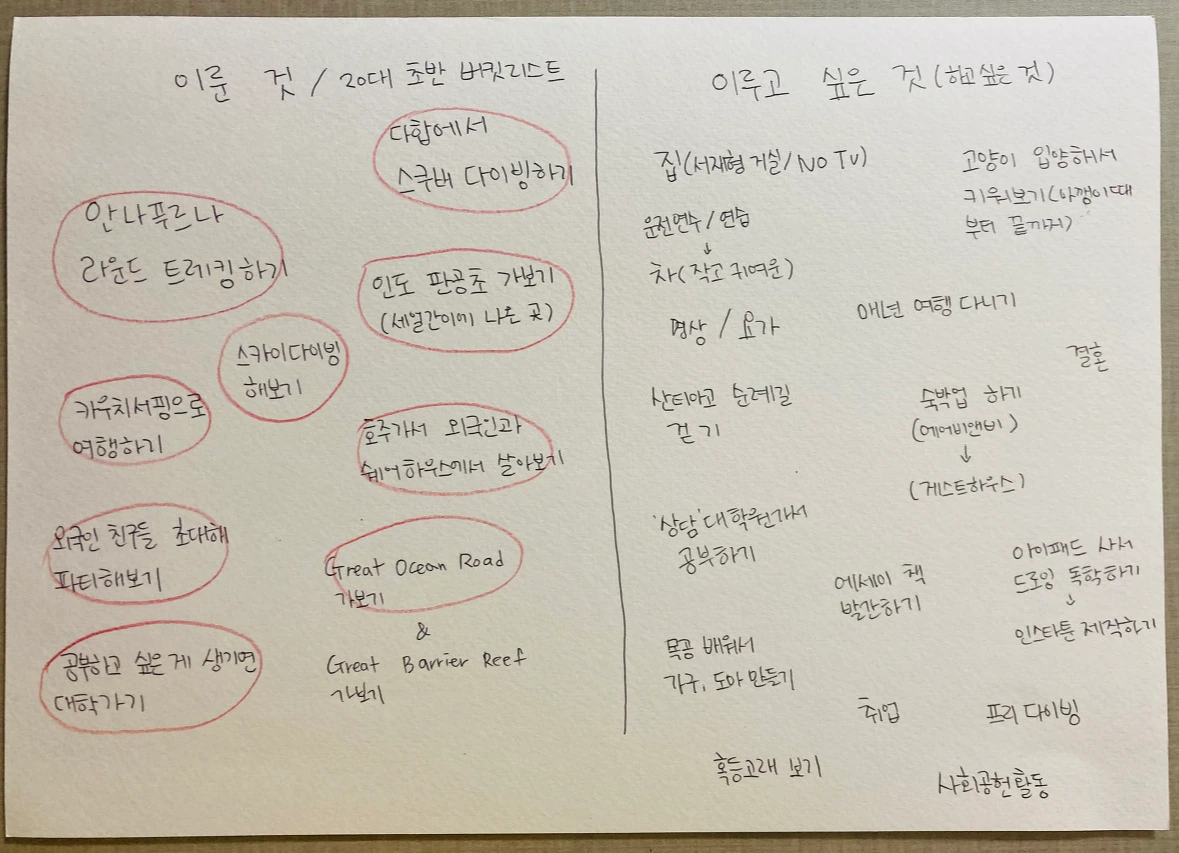 이룬 것 / 20대 초반 버킷리스트
다합에서
스쿠버 다이빙하기
안나푸르나
라운드 트레킹하기
인도 판공초 가보기
(세얼간이에 나온 곳)
스카이다이빙
해보기
카우치서핑으로
여행하기
호주가서 외국인과
쉐어하우스에서 살아보기
외국인 친구들 초대해
파티해보기
Great Ocean Road
가보기
&
Great Barrier Reef
가보기
공부하고 싶은 게 생기면
대학가기
이루고 싶은 것 (하고 싶은 것)
집(서재형 거실/NO TV)
고양이 입양해서
키워보기(아깽이때
부터 끝까지)
운전연수/연습
↓
차(작고 귀여운)
매년 여행 다니기
명상 / 요가
결혼
산티아고 순례길
걷기
숙박업 하기
(에어비앤비)
↓
(게스트하우스)
'상담' 대학원가서
공부하기
에세이 책
발간하기
아이패드 사서
드로잉 독학하기
↓
인스타툰 제작하기
목공 배워서
가구, 도마 만들기
취업
프리다이빙
혹등고래 보기
사회공헌활동